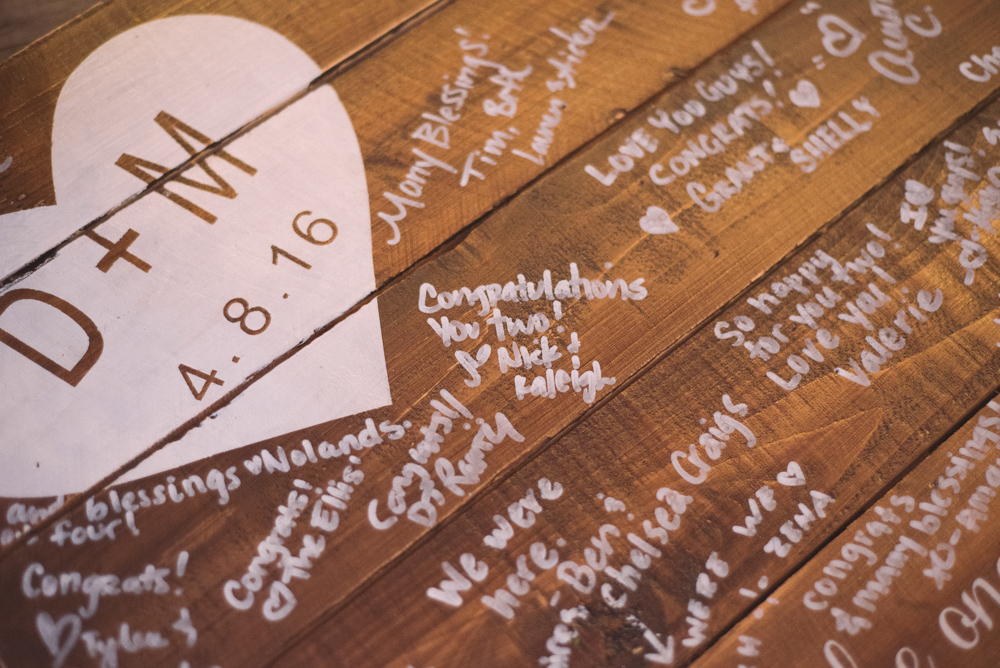 D + M
4.8.16
Many Blessings!
Tim, Beth
LOVE YOU GUYS!
CONGRATS!
GRANT &
SHELLY
Congratulations
You two!
Nick &
Kaleigh
So happy
for you two!
Love you!
Valerie
and blessings ♥ Nolands.
four!
Congrats!
The Ellis'
Congrats!!
Dr Randy
We were
here.
-Ben &
Chelsea Craigs
WE ♥
Congrats!
♥ Tyler &
Congrats
& many blessings
xo-
on